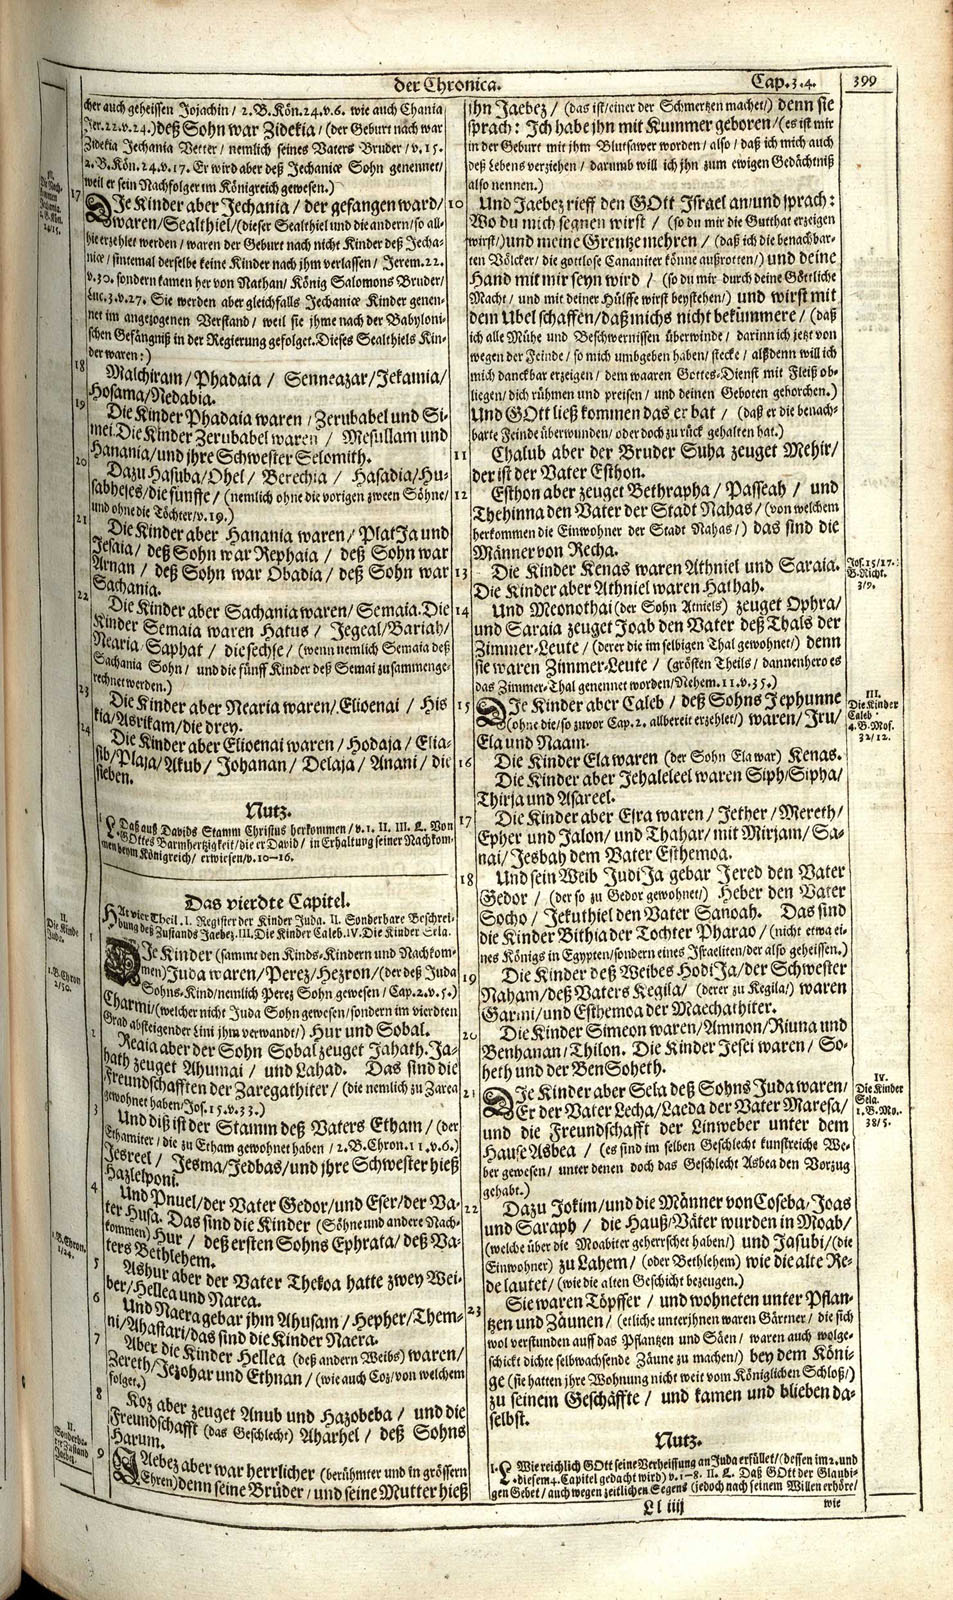 der Chronica. Cap.3.4. 399
cher auch geheissen Jojachin / 2.B.Kön.24.v.6. wie auch Chania
Jer.22.v.24.) deß Sohn war Zidekia / (der Geburt nach war
Zidekia Jechania Vetter / nemlich seines Vaters Bruder / v.15.
2.B.Kön.24.v.17. Er wird aber deß Jechaniæ Sohn genennet /
weil er sein Nachfolger im Königreich gewesen.)
17 DJe Kinder aber Jechania / der gefangen ward /
waren / Sealthiel / (dieser Sealthiel und die andern / so all-
hie erzehlet werden / waren der Geburt nach nicht Kinder deß Jecha-
niæ / sintemal derselbe keine Kinder nach jhm verlassen / Jerem.22.
v.30. sondern kamen her von Nathan / König Salomons Bruder /
Luc.3.v.27. Sie werden aber gleichfalls Jechaniæ Kinder genen-
net im angezogenen Verstand / weil sie jhme nach der Babyloni-
schen Gefängniß in der Regierung gefolget. Dieses Sealthiels Kin-
der waren:)
18 Malchiram / Phadaia / Senneazar / Jekamia /
Hosama / Nedabia.
19 Die Kinder Phadaia waren / Zerubabel und Si-
mei. Die Kinder Zerubabel waren / Mesullam und
Hanania / und jhre Schwester Selomith.
20 Dazu Hasuba / Ohel / Berechia / Hasadia / Hu-
sabhesed / die fünffe / (nemlich ohne die vorigen zween Söhne /
und ohne die Töchter / v.19.)
21 Die Kinder aber Hanania waren / PlatJa und
Jesaia / deß Sohn war Rephaia / deß Sohn war
Arnan / deß Sohn war Obadia / deß Sohn war
Sachania.
22 Die Kinder aber Sachania waren / Semaia. Die
Kinder Semaia waren Hatus / Jegeal / Bariah /
Nearia / Saphat / die sechse / (wenn nemlich Semaia deß
Sachania Sohn / und die fünff Kinder deß Semai zusammenge-
rechnet werden.)
23 Die Kinder aber Nearia waren / Elioenai / His
kia / Asrikam / die drey.
24 Die Kinder aber Elioenai waren / Hodaja / Elia-
sib / Plaja / Akub / Johanan / Delaja / Anani / die
sieben.
Nutz.
L. Daß auß Davids Stamm Christus herkommen / v.1. II. III. L. Von
GOttes Barmhertzigkeit / die er David / in Erhaltung seiner Nachkom-
men beym Königreich / erwiesen / v.10-16.
Das vierdte Capitel.
HAt vier Theil. I. Register der Kinder Juda. II. Sonderbare Beschrei-
bung deß Zustands Jaebez. III. Die Kinder Caleb. IV. Die Kinder Sela.
1 DJe Kinder (sammt den Kinds-Kindern und Nachkom-
men) Juda waren / Perez / Hezron / (der deß Juda
Sohns-Kind / nemlich Perez Sohn gewesen / Cap.2.v.5.)
Charmi / (welcher nicht Juda Sohn gewesen / sondern im vierdten
Grad absteigender Lini jhm verwandt /) Hur und Sobal.
2 Reaia aber der Sohn Sobal zeuget Jahath. Ja-
hath zeuget Ahumai / und Lahad. Das sind die
Freundschafften der Zaregathiter / (die nemlich zu Zarea
gewohnet haben / Jos.15.v.33.)
3 Und diß ist der Stamm deß Vaters Etham / (der
Ethamiter / die zu Etham gewohnet haben / 2.B.Chron.11.v.6.)
Jesreel / Jesma / Jedbas / und jhre Schwester hieß
Hazlelponi.
4 Und Pnuel / der Vater Gedor / und Eser / der Va-
ter Husa. Das sind die Kinder (Söhne und andere Nach-
kommen) Hur / deß ersten Sohns Ephrata / deß Va-
ters Bethlehem.
5 Ashur aber der Vater Thekoa hatte zwey Wei-
ber / Hellea und Narea.
6 Und Naera gebar jhm Ahusam / Hepher / Them-
ni / Ahastari / das sind die Kinder Naera.
7 Aber die Kinder Hellea (deß andern Weibs) waren /
Zereth / Jezohar und Ethnan / (wie auch Coz / von welchem
folget.)
8 Koz aber zeuget Anub und Hazobeba / und die
Freundschafft (das Geschlecht) Aharhel / deß Sohns
Harum.
9 JAebez aber war herrlicher (berühmter und in grössern
Ehren) denn seine Brüder / und seine Mutter hieß
ihn Jaebez / (das ist / einer der Schmertzen machet /) denn sie
sprach: Ich habe ihn mit Kummer geboren / (es ist mir
in der Geburt mit jhm Blutsawer worden / also / daß ich mich auch
deß Lebens verziehen / darumb will ich jhn zum ewigen Gedächtniß
also nennen.)
10 Und Jaebez rieff den GOtt Israel an / und sprach:
Wo du mich segnen wirst / (so du mir die Gutthat erzeigen
wirst /) und meine Grentze mehren / (daß ich die benachbar-
ten Völcker / die gottlose Cananiter könne außrotten /) und deine
Hand mit mir seyn wird / (so du mir durch deine Göttliche
Macht / und mit deiner Hülffe wirst beystehen /) und wirst mit
dem Ubel schaffen / daß michs nicht bekümmere / (daß
ich alle Mühe und Beschwernissen überwinde / darinn ich jetzt von
wegen der Feinde / so mich umbgeben haben / stecke / alßdenn will ich
mich danckbar erzeigen / dem waaren Gottes-Dienst mit Fleiß ob-
liegen / dich rühmen und preisen / und deinen Geboten gehorchen.)
Und GOtt ließ kommen das er bat / (daß er die benach-
barte Feinde überwunden / oder doch zu rück gehalten hat.)
11 Chalub aber der Bruder Suha zeuget Mehir /
der ist der Vater Esthon.
12 Esthon aber zeuget Bethrapha / Passeah / und
Thehinna den Vater der Stadt Nahas / (von welchem
herkommen die Einwohner der Stadt Nahas /) das sind die
Männer von Recha.
13 Die Kinder Kenas waren Athniel und Saraia.
Die Kinder aber Athniel waren Hathah.
14 Und Meonothai (der Sohn Atniels) zeuget Ophra /
und Saraia zeuget Joab den Vater deß Thals der
Zimmer-Leute / (derer die im selbigen Thal gewohnet /) denn
sie waren Zimmer-Leute / (grösten Theils / dannenhero es
das Zimmer-Thal genennet worden / Nehem.11.v.35.)
15 DJe Kinder aber Caleb / deß Sohns Jephunne
(ohne die / so zuvor Cap.2. allbereit erzehlet /) waren / Iru /
Ela und Naam.
16 Die Kinder Ela waren (der Sohn Ela war) Kenas.
Die Kinder aber Jehaleleel waren Siph / Sipha /
Thirja und Asareel.
17 Die Kinder aber Esra waren / Jether / Mereth /
Epher und Jalon / und Thahar / mit Mirjam / Sa-
nai / Jesbah dem Vater Esthemoa.
18 Und sein Weib JudiJa gebar Jered den Vater
Gedor / (der so zu Gedor gewohnet /) Heber den Vater
Socho / Jekuthiel den Vater Sanoah. Das sind
die Kinder Bithia der Tochter Pharao / (nicht etwa ei-
nes Königs in Egypten / sondern eines Israeliten / der also geheissen.)
19 Die Kinder deß Weibes HodiJa / der Schwester
Naham / deß Vaters Kegila / (derer zu Kegila /) waren
Garmi / und Esthemoa der Maechathiter.
20 Die Kinder Simeon waren / Amnon / Riuna und
Benhanan / Thilon. Die Kinder Jesei waren / So-
heth und der BenSoheth.
21 DJe Kinder aber Sela deß Sohns Juda waren /
Er der Vater Lecha / Laeda der Vater Maresa /
und die Freundschafft der Linweber unter dem
Hause Asbea / (es sind im selben Geschlecht kunstreiche We-
ber gewesen / unter denen doch das Geschlecht Asbea den Vorzug
gehabt.)
22 Dazu Jokim / und die Männer von Coseba / Joas
und Saraph / die Hauß-Väter wurden in Moab /
(welche über die Moabiter geherrschet haben /) und Jasubi / (die
Einwohner) zu Lahem / (oder Bethlehem) wie die alte Re-
de lautet / (wie die alten Geschicht bezeugen.)
23 Sie waren Töpffer / und wohneten unter Pflan-
tzen und Zäunen / (etliche unter jhnen waren Gärtner / die sich
wol verstunden auff das Pflantzen und Säen / waren auch wolge-
schickt dichte selbwachsende Zäune zu machen /) bey dem Köni-
ge (sie hatten jhre Wohnung nicht weit vom Königlichen Schloß /)
zu seinem Geschäffte / und kamen und blieben da-
selbst.
Nutz.
I. L. Wie reichlich GOtt seine Verheissung an Juda erfüllet / (dessen im 2. und
diesem 4. Capitel gedacht wird) v.1-8. II. L. Daß GOtt der Glaubi-
gen Gebet / auch wegen zeitlichen Segens (jedoch nach seinem Willen erhöre /
Ll iiij wie
III.
Die Nach-
kommen
Jechania.
2.B.Kön.
24/15.
II.
Die Kinder
Juda.
1.B.Chron
2/50.
1.B.Chron.
1/24.
II.
Sonderba-
rer Zustand
Jaebez.
Jos.15/17.:
B.Richt.
3/9.
III.
Die Kinder
Caleb.
4.B.Mos.
32/12.
IV.
Die Kinder
Sela.
1.B.Mo.
38/5.